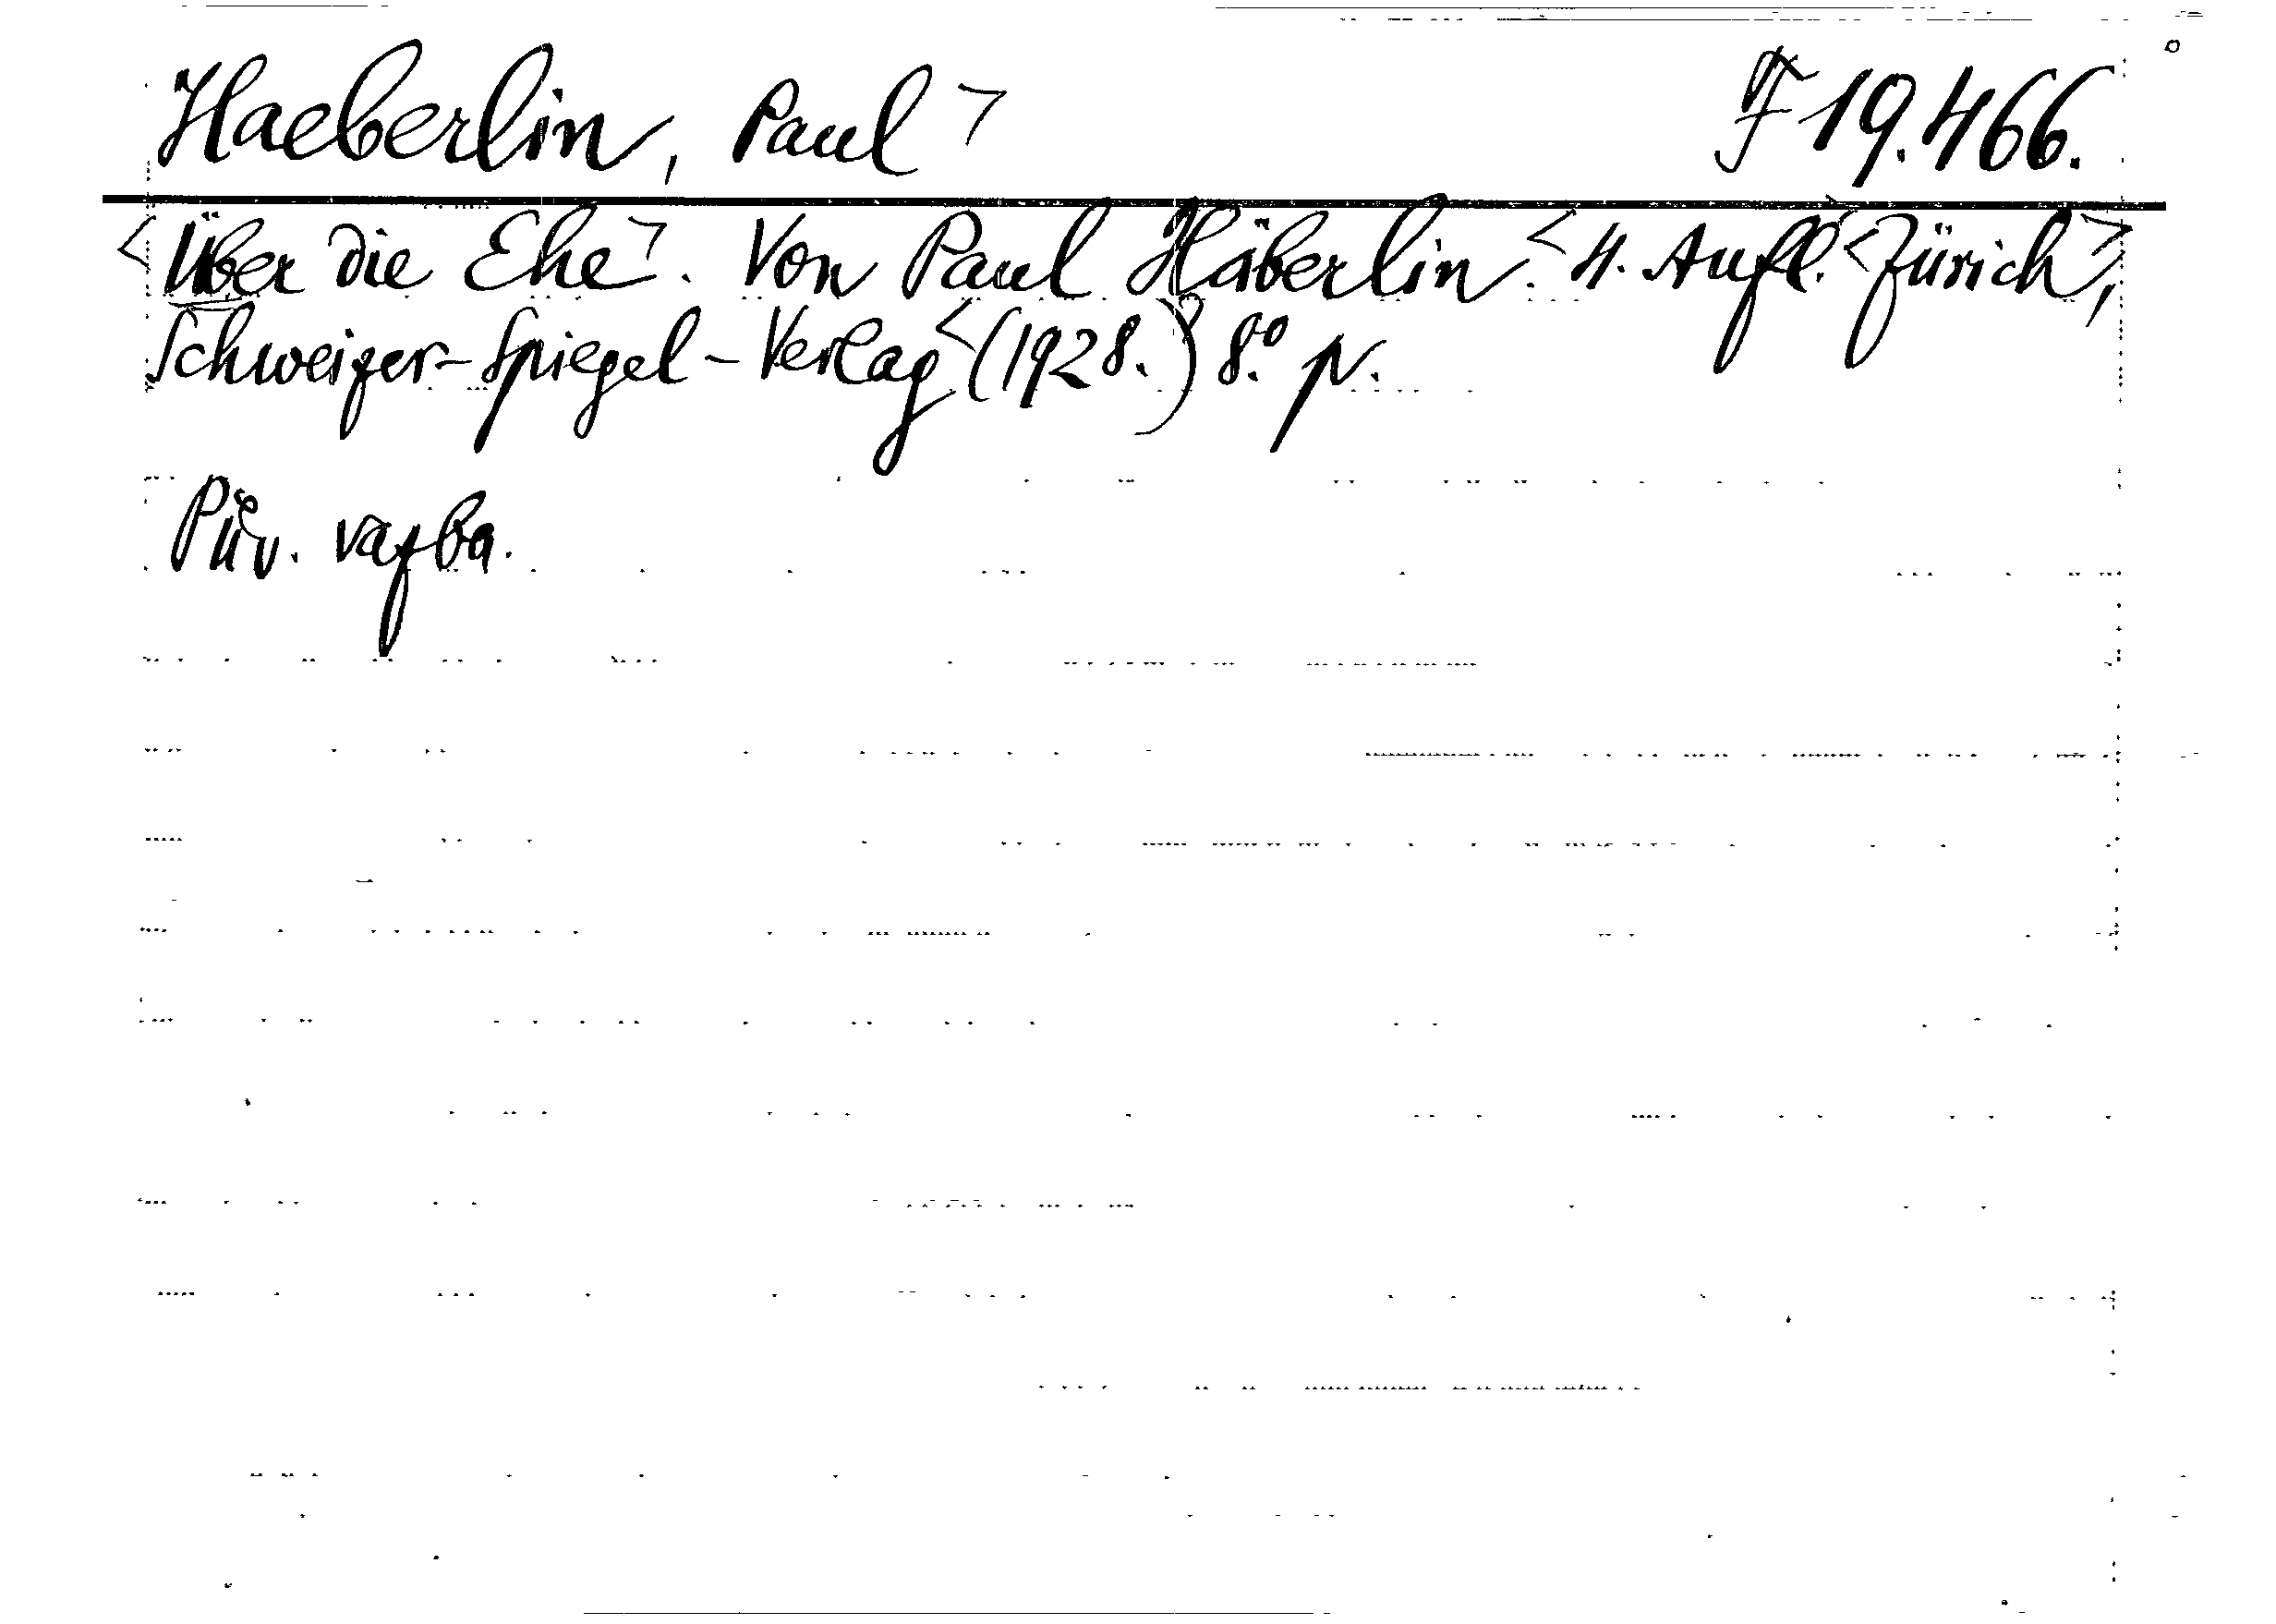 Haeberlin, Paul> F 19.466.
<Über die Ehe>. Von Paul Häberlin.<4. Aufl.<Zürich>,
Schweizer-Spiegel-Verlag<(1928.) 8.º p.
Pův. vazba.